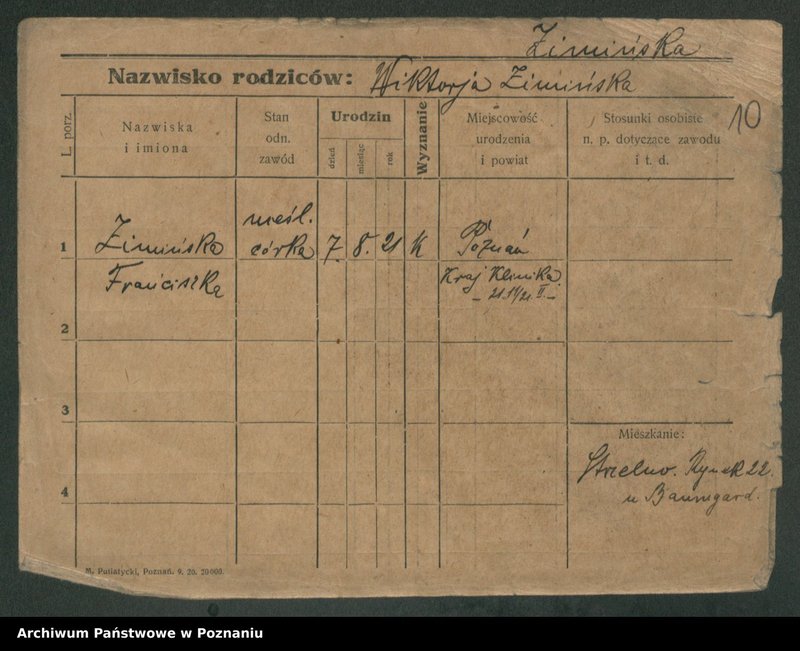 Zimińska
Nazwisko rodziców: Wiktorja Zimińska
10
L. porz.
Nazwiska
i imiona
Stan
odn.
zawód
Urodzin
dzień
miesiąc
rok
Wyznanie
Miejscowość
urodzenia
i powiat
Stosunki osobiste
n. p. dotyczące zawodu
i t. d.
1
Zimińska
Franciszka
nieśl.
córka
7
8.
21
K
Poznań
Kraj Klinika
2
3
4
Mieszkanie:
Strzelno. Rynek 22
u Baumgard.
M. Putiatycki, Poznań. 9. 20. 20000.
Archiwum Państwowe w Poznaniu